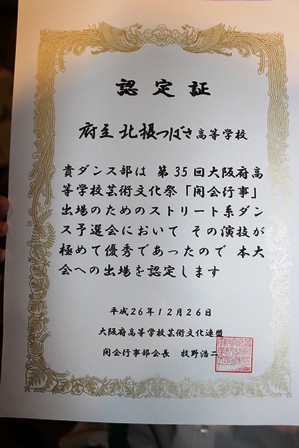 認定証
府立 北摂つばさ高等学校
貴ダンス部は 第35回大阪府高
等学校芸術文化祭「閉会行事」
出場のためのストリート系ダン
ス予選会において その演技が
極めて優秀であったので 本大
会への出場を認定します
平成26年12月26日
大阪府高等学校芸術文化連盟
閉会行事部会長 牧野浩二